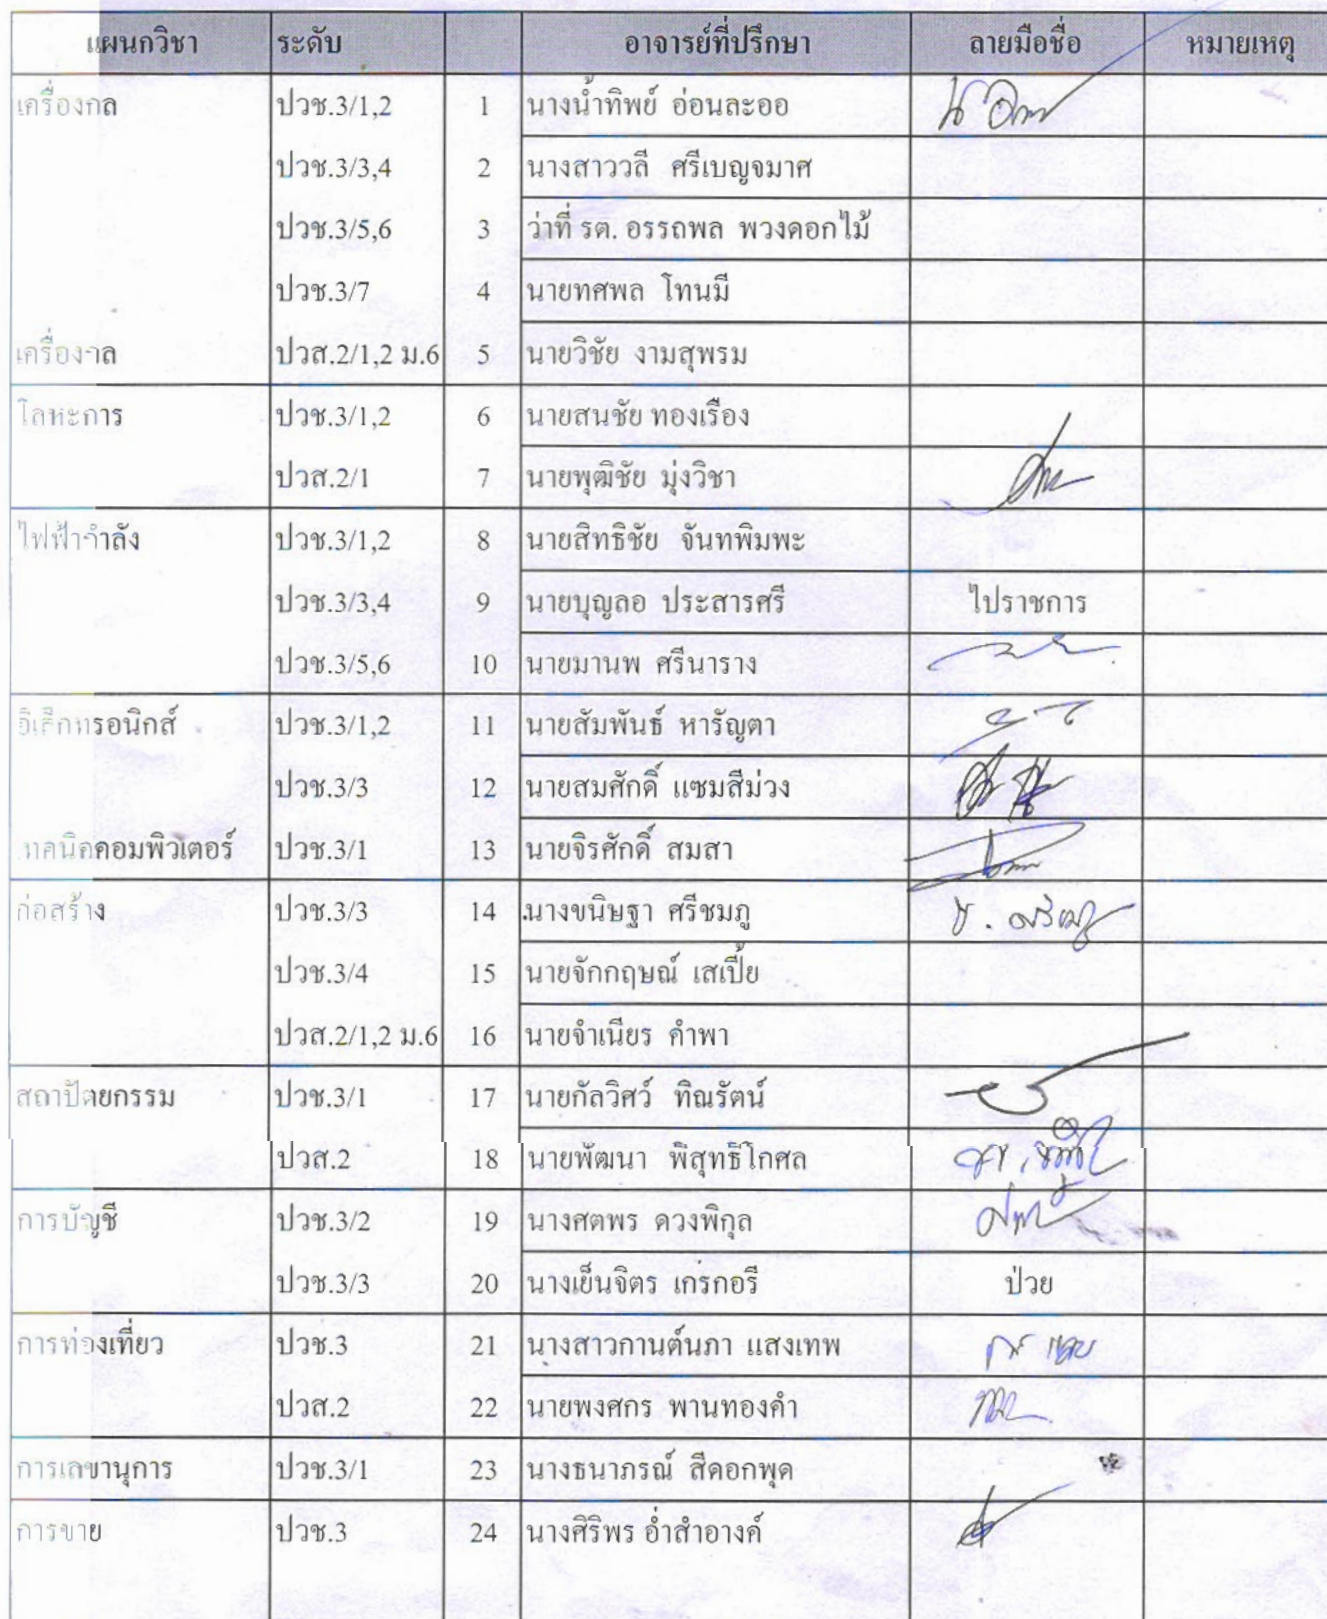 แผนกวิชา ระดับ อาจารย์ที่ปรึกษา ลายมือชื่อ หมายเหตุ
เครื่องกล ปวช.3/1,2 1 นางน้ำทิพย์ อ่อนละออ
ปวช.3/3,4 2 นางสาววลี ศรีเบญจมาศ
ปวช.3/5,6 3 ว่าที่ รต. อรรถพล พวงดอกไม้
ปวช.3/7 4 นายทศพล โทนมี
เครื่องกล ปวส.2/1,2 ม.6 5 นายวิชัย งามสุพรม
โลหะการ ปวช.3/1,2 6 นายสนชัย ทองเรือง
ปวส.2/1 7 นายพุฒิชัย มุ่งวิชา
ไฟฟ้ากำลัง ปวช.3/1,2 8 นายสิทธิชัย จันทพิมพะ
ปวช.3/3,4 9 นายบุญลอ ประสารศรี ไปราชการ
ปวช.3/5,6 10 นายมานพ ศรีนาราง
อิเล็กทรอนิกส์ ปวช.3/1,2 11 นายสัมพันธ์ หารัญตา
ปวช.3/3 12 นายสมศักดิ์ แซมสีม่วง
เทคนิคคอมพิวเตอร์ ปวช.3/1 13 นายจิรศักดิ์ สมสา
ก่อสร้าง ปวช.3/3 14 นางขนิษฐา ศรีชมภู
ปวช.3/4 15 นายจักกฤษณ์ เสเปี้ย
ปวส.2/1,2 ม.6 16 นายจำเนียร คำพา
สถาปัตยกรรม ปวช.3/1 17 นายกัลวิศว์ ทิณรัตน์
ปวส.2 18 นายพัฒนา พิสุทธิโกศล
การบัญชี ปวช.3/2 19 นางศตพร ดวงพิกุล
ปวช.3/3 20 นางเย็นจิตร เกรกอรี ป่วย
การท่องเที่ยว ปวช.3 21 นางสาวกานต์นภา แสงเทพ
ปวส.2 22 นายพงศกร พานทองคำ
การเลขานุการ ปวช.3/1 23 นางธนาภรณ์ สีดอกพุด
การขาย ปวช.3 24 นางศิริพร อ่ำสำอางค์